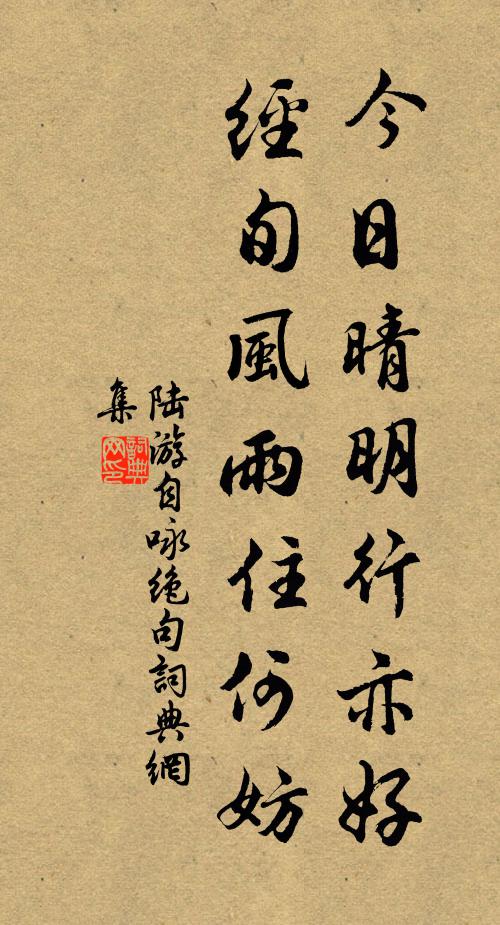 今日晴明行亦好
經旬風雨住何妨
陆游自咏绝句詞典網
集
詞典网印